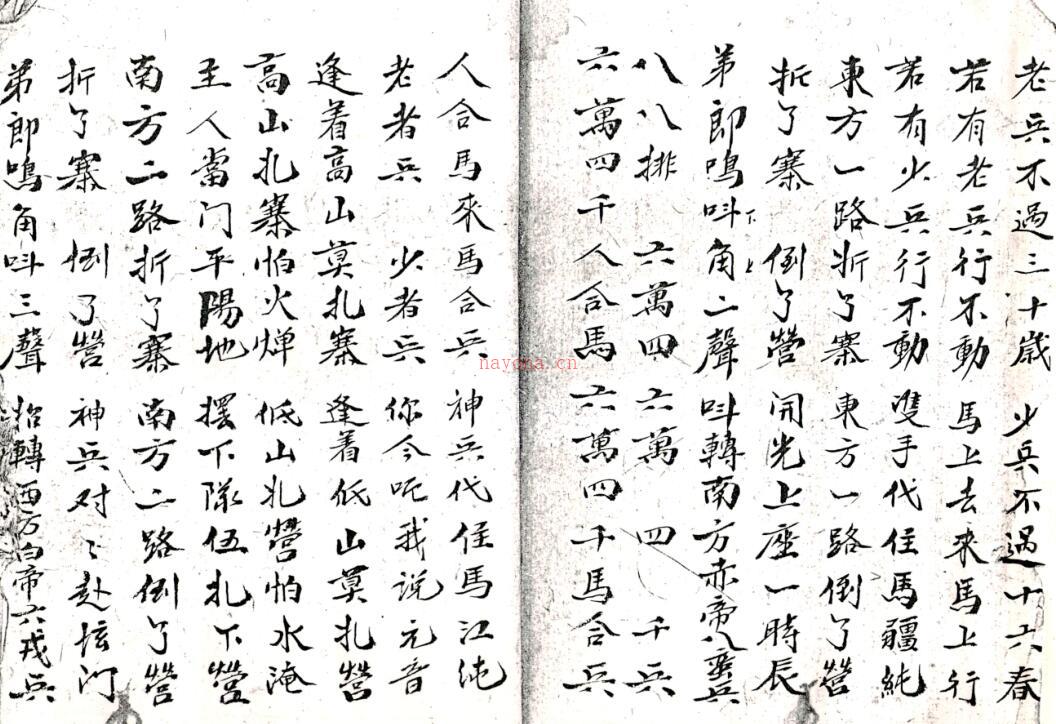 老兵不過三十歲 少兵不過十六春
若有老兵行不動 馬上去來馬上行
若有少兵行不動 雙手代住馬疆純
東方一路折了寨 東方一路倒了營
折了寨 倒了營 開光上座一時辰
弟郎鳴呌角二聲 呌轉南方赤帝八蛮兵
八八排 六萬四 六萬四千兵
六萬四千人合馬 六萬四千馬合兵
人合馬來馬合兵 神兵代住馬江純
老者兵 少者兵 你今听我说元音
逢着高山莫扎寨 逢着低山莫扎營
高山扎寨怕火燀 低山扎營怕水淹
主人當门平陽地 擺下隊伍扎下營
南方二路折了寨 南方二路倒了營
折了寨 倒了營 神兵对〻赴坛门
弟郎鳴角呌三聲 招轉西方白帝六戎兵
nayona.cn